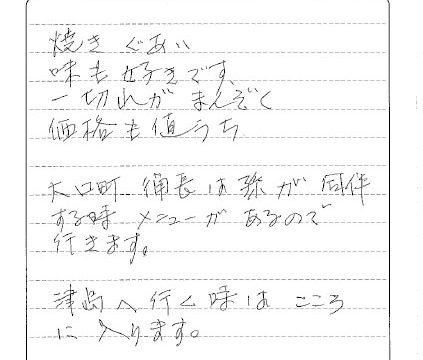 焼き ぐあい
味も好きです、
一切れが まんぞく
価格も値うち
大口町 備長は孫が 同伴
する時 メニューが あるので
行きます。
津島へ行く時は こころ
に入ります。